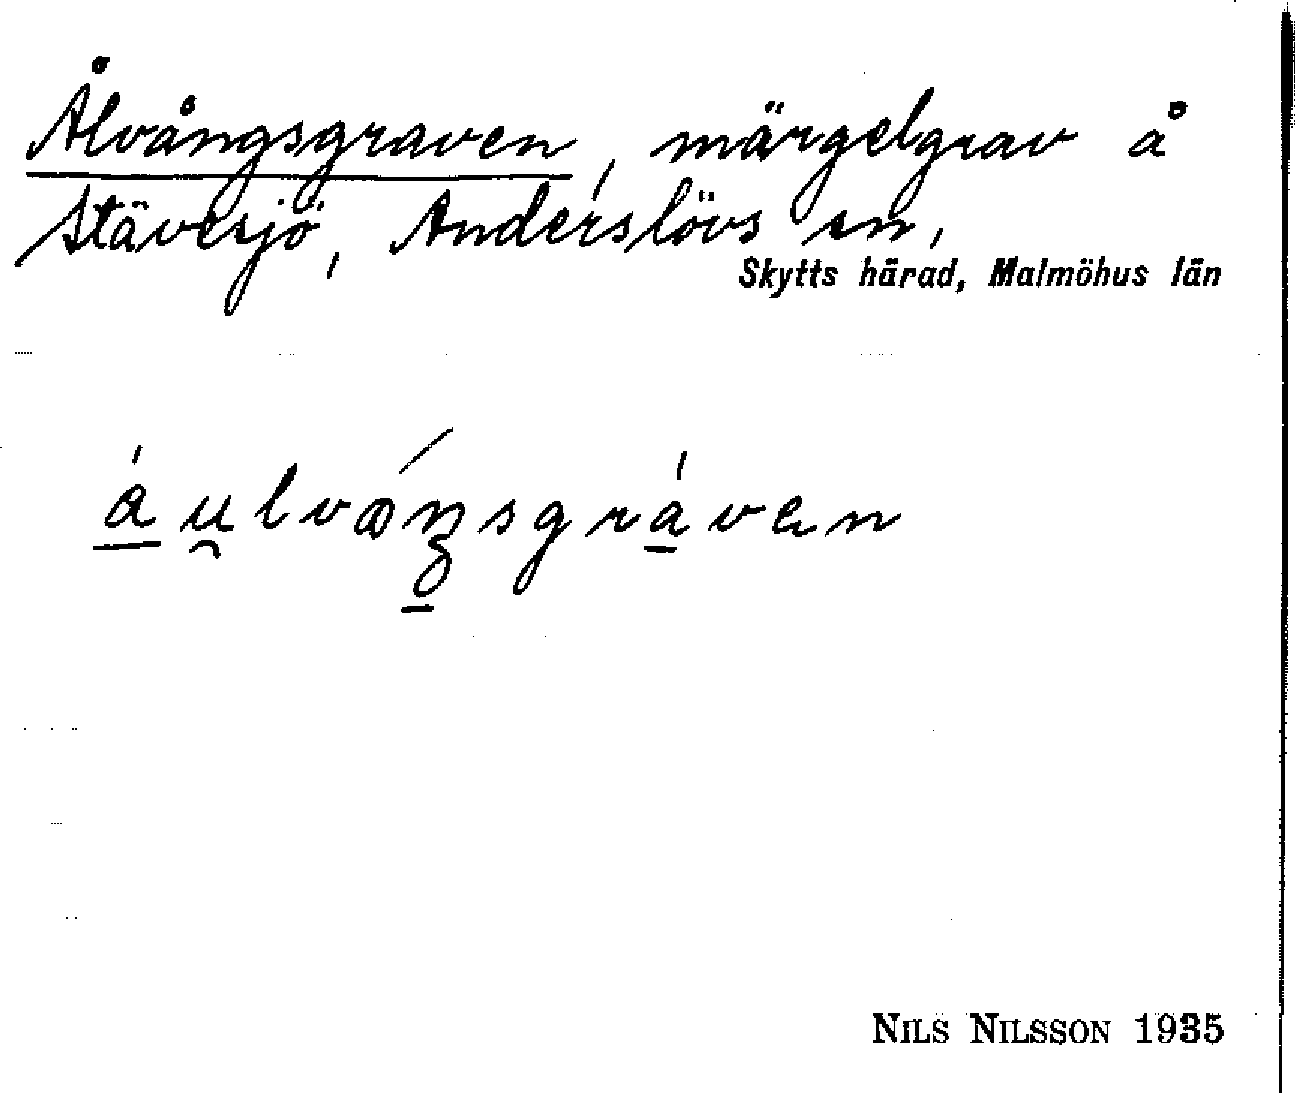 Ålvångsgraven, märgelgrav å
Stävesjö, Anderslövs sn,
Skytts härad, Malmöhus län
áu̯lvåŋsgráven
NILS NILSSON 1935